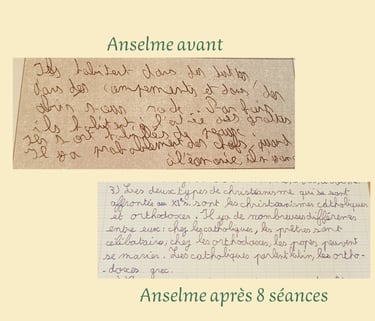 Anselme avant
Ils habitent dans des
dans des campements et dans des
abris sous roche. Parfois
ils habitent à l'entrée des grottes
Ils sont de peaux
Il y a probablement des chefs, quand
à l'économie, ils
3) Les deux types de christianisme qui se sont
affrontés au XIe s. sont les christianismes catholiques
et orthodoxes. Il y a de nombreuses différences
entre eux : chez les catholiques, les prêtres sont
célibataires, chez les orthodoxes, les popes peuvent
se marier. Les catholiques parlent latin, les ortho-
-doxes grec.
Anselme après 8 séances